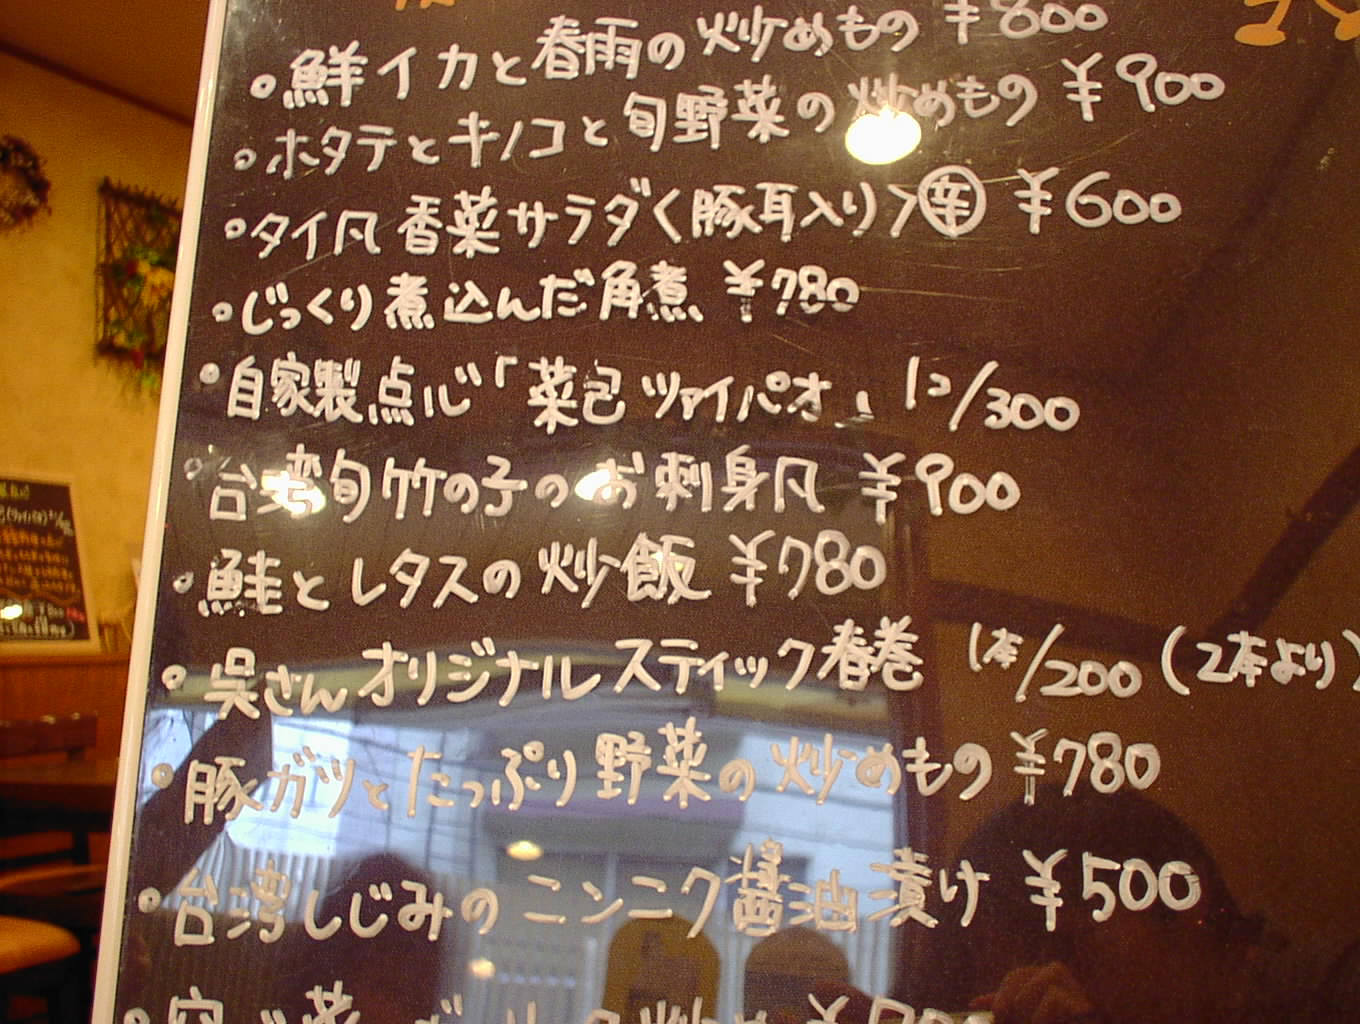 ・鮮イカと春雨の炒めもの ¥800
・ホタテとキノコと旬野菜の炒めもの ¥900
・タイ風香菜サラダ〈豚耳入り〉辛 ¥600
・じっくり煮込んだ角煮 ¥780
・自家製点心「菜包 ツァイパオ」 1コ/300
・台湾旬竹の子のお刺身風 ¥900
・鮭とレタスの炒飯 ¥780
・呉さんオリジナルスティック春巻 1本/200 (2本より)
・豚ガツとたっぷり野菜の炒めもの ¥780
・台湾しじみのニンニク醤油漬け ¥500